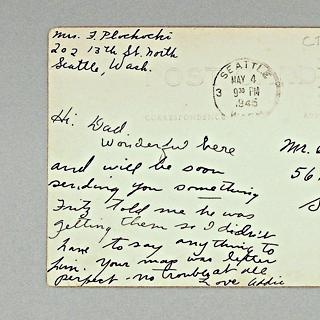 Mrs. F. Plochocki
202 13th St. North
Seattle, Wash.
SEATTLE
MAY 4
3 9 30 PM
1946
POST
CORRESPONDENCE
Hi Dad
Wonderful here
and will be soon
sending you something
Fritz told me he was
getting them so I didn't
have to say anything to
him. Your map was letter
perfect - no trouble at all
Love Addie
Mr.
56
S